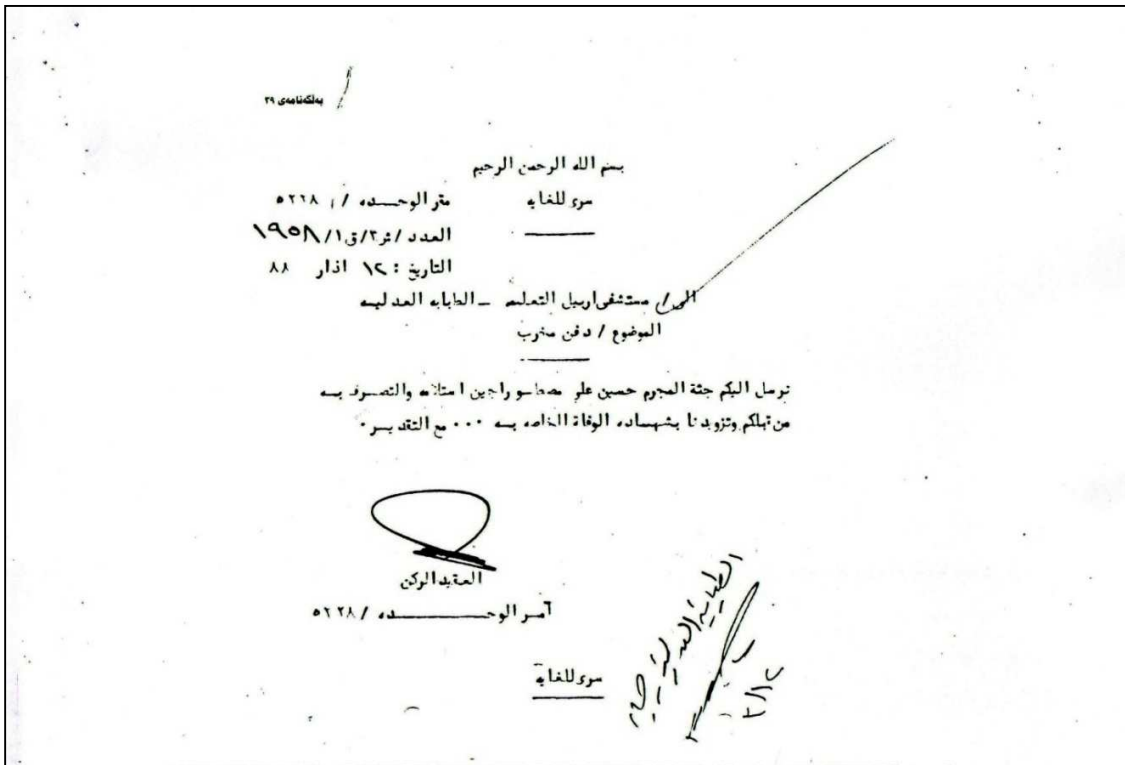 بەڵگەنامەی ٣٩
بسم الله الرحمن الرحيم
سرى للغايه
مقر الوحـــده / ٥٢٢٨
العدد /ش٢/ق١/١٩٥٨
التاريخ : ١٢ اذار ٨٨
الى / مستشفى اربيل التعليمه _ الطبابه العدليـه
الموضوع / دفن مخرب
نرسل اليكم جثة المجرم حسين علي مصطفـى راجين استلامه والتصـرف بـه
من قبلكم وتزويدنا بشهـاده الوفاة الخاصه بـه ٠٠٠ مع التقديـر ٠
العقيد الركن
آمـر الوحـــــــــده / ٥٢٢٨
سرى للغايه
الطبابة العدلية
٣/١٢